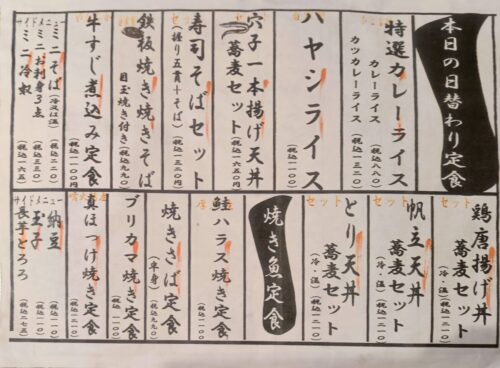 本日の日替わり定食
特選カレーライス
カレーライス (税込八八〇)
カツカレーライス (税込一三二〇)
ハヤシライス
穴子一本揚げ天丼
蕎麦セット (税込一六五〇円)
セット
寿司そばセット
(握り五貫+そば) (税込一三二〇円)
鉄板焼き焼きそば
目玉焼き付き (税込九九〇)
牛すじ煮込み定食
(税込一一〇〇円)
サイドメニュー
ミニそば (冷又は温) (税込二二〇)
ミニお刺身3点 (税込三三〇)
ミニ冷奴 (税込一六五)
セット
鶏唐揚げ丼
蕎麦セット
(冷・温) (税込一二一〇)
セット
帆立天丼
蕎麦セット
(冷・温) (税込一二一〇)
セット
とり天丼
蕎麦セット
(冷・温) (税込一二一〇)
焼き魚定食
鮭ハラス焼き定食
(税込一二一〇)
焼きさば定食
(半身) (税込九九〇)
ブリカマ焼き定食
(税込一一〇〇)
真ほっけ焼き定食
(税込一二一〇)
サイドメニュー
納豆 (税込一一〇)
玉子 (税込一一〇)
長芋とろろ (税込二七五)